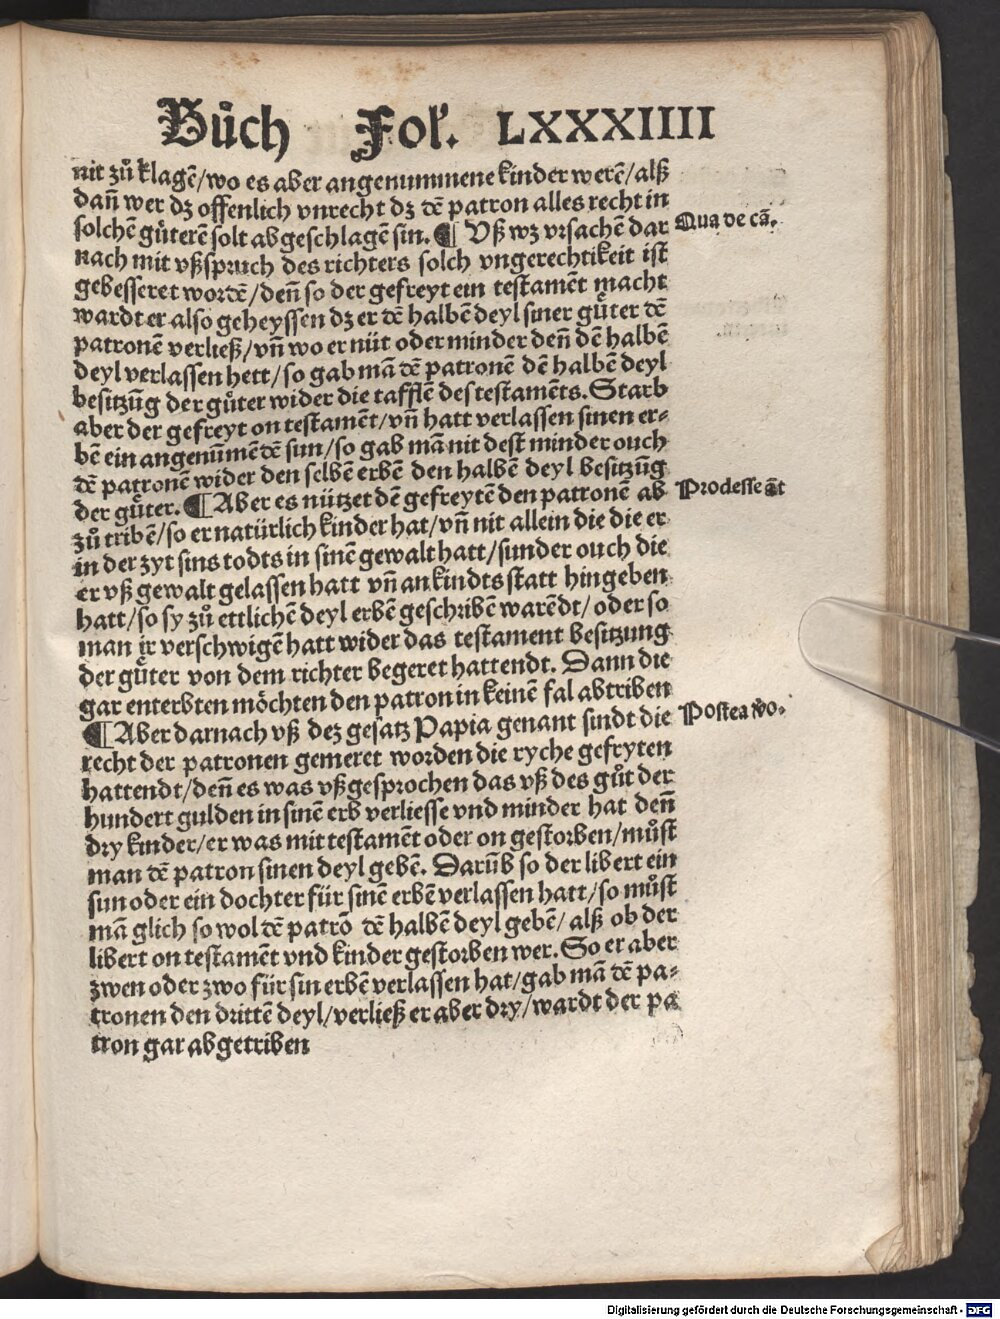 Bůch Fol'. LXXXIIII
nit zů klagē/wo es aber angenummene kinder werē/alß
dañ wer dz offenlich vnrecht dz dē patron alles recht in
solchē gůterē solt abgeschlagē sin. ¶ Vß wz vrsachē dar
Qua de cā.
nach mit vßspruch des richters solch vngerechtikeit ist
gebesseret wordē/deñ so der gefreyt ein testamēt macht
wardt er also geheyssen dz er dē halbē deyl siner gůter dē
patronē verließ/vñ wo er nüt oder minder deñ dē halbē
deyl verlassen hett/so gab mā dē patronē dē halbē deyl
besitzūg der gůter wider die tafflē des testamēts. Starb
aber der gefreyt on testamēt/vñ hatt verlassen sinen er-
bē ein angenūmēdē sun/so gab mā nit dest minder ouch
dē patronē wider den selbē erbē den halbē deyl besitzūg
der gůter. ¶ Aber es nützet dē gefreytē den patronē ab
Prodesse āt
zů tribē/so er natürlich kinder hat/vñ nit allein die die er
in der zyt sins todts in sinē gewalt hatt/sunder ouch die
er vß gewalt gelassen hatt vñ an kindts statt hingeben
hatt/so sy zů ettlichē deyl erbē geschribē warēdt/oder so
man ir verschwigē hatt wider das testament besitzung
der gůter von dem richter begeret hattendt. Dann die
gar enterbten möchten den patron in keinē fal abtriben
¶ Aber darnach vß dez gesatz Papia genant sindt die
Postea vo.
recht der patronen gemeret worden die ryche gefryten
hattendt/deñ es was vßgesprochen das vß des gůt der
hundert gulden in sinē erb verliesse vnd minder hat deñ
dry kinder/er was mit testamēt oder on gestorben/můst
man dē patron sinen deyl gebē. Darūb so der libert ein
sun oder ein dochter für sinē erbē verlassen hatt/so můst
mā glich so wol dē patrō dē halbē deyl gebē/alß ob der
libert on testamēt vnd kinder gestorben wer. So er aber
zwen oder zwo für sin erbē verlassen hat/gab mā dē pa-
tronen den drittē deyl/verließ er aber dry/wardt der pa
tron gar abgetriben
Digitalisierung gefördert durch die Deutsche Forschungsgemeinschaft - DFG